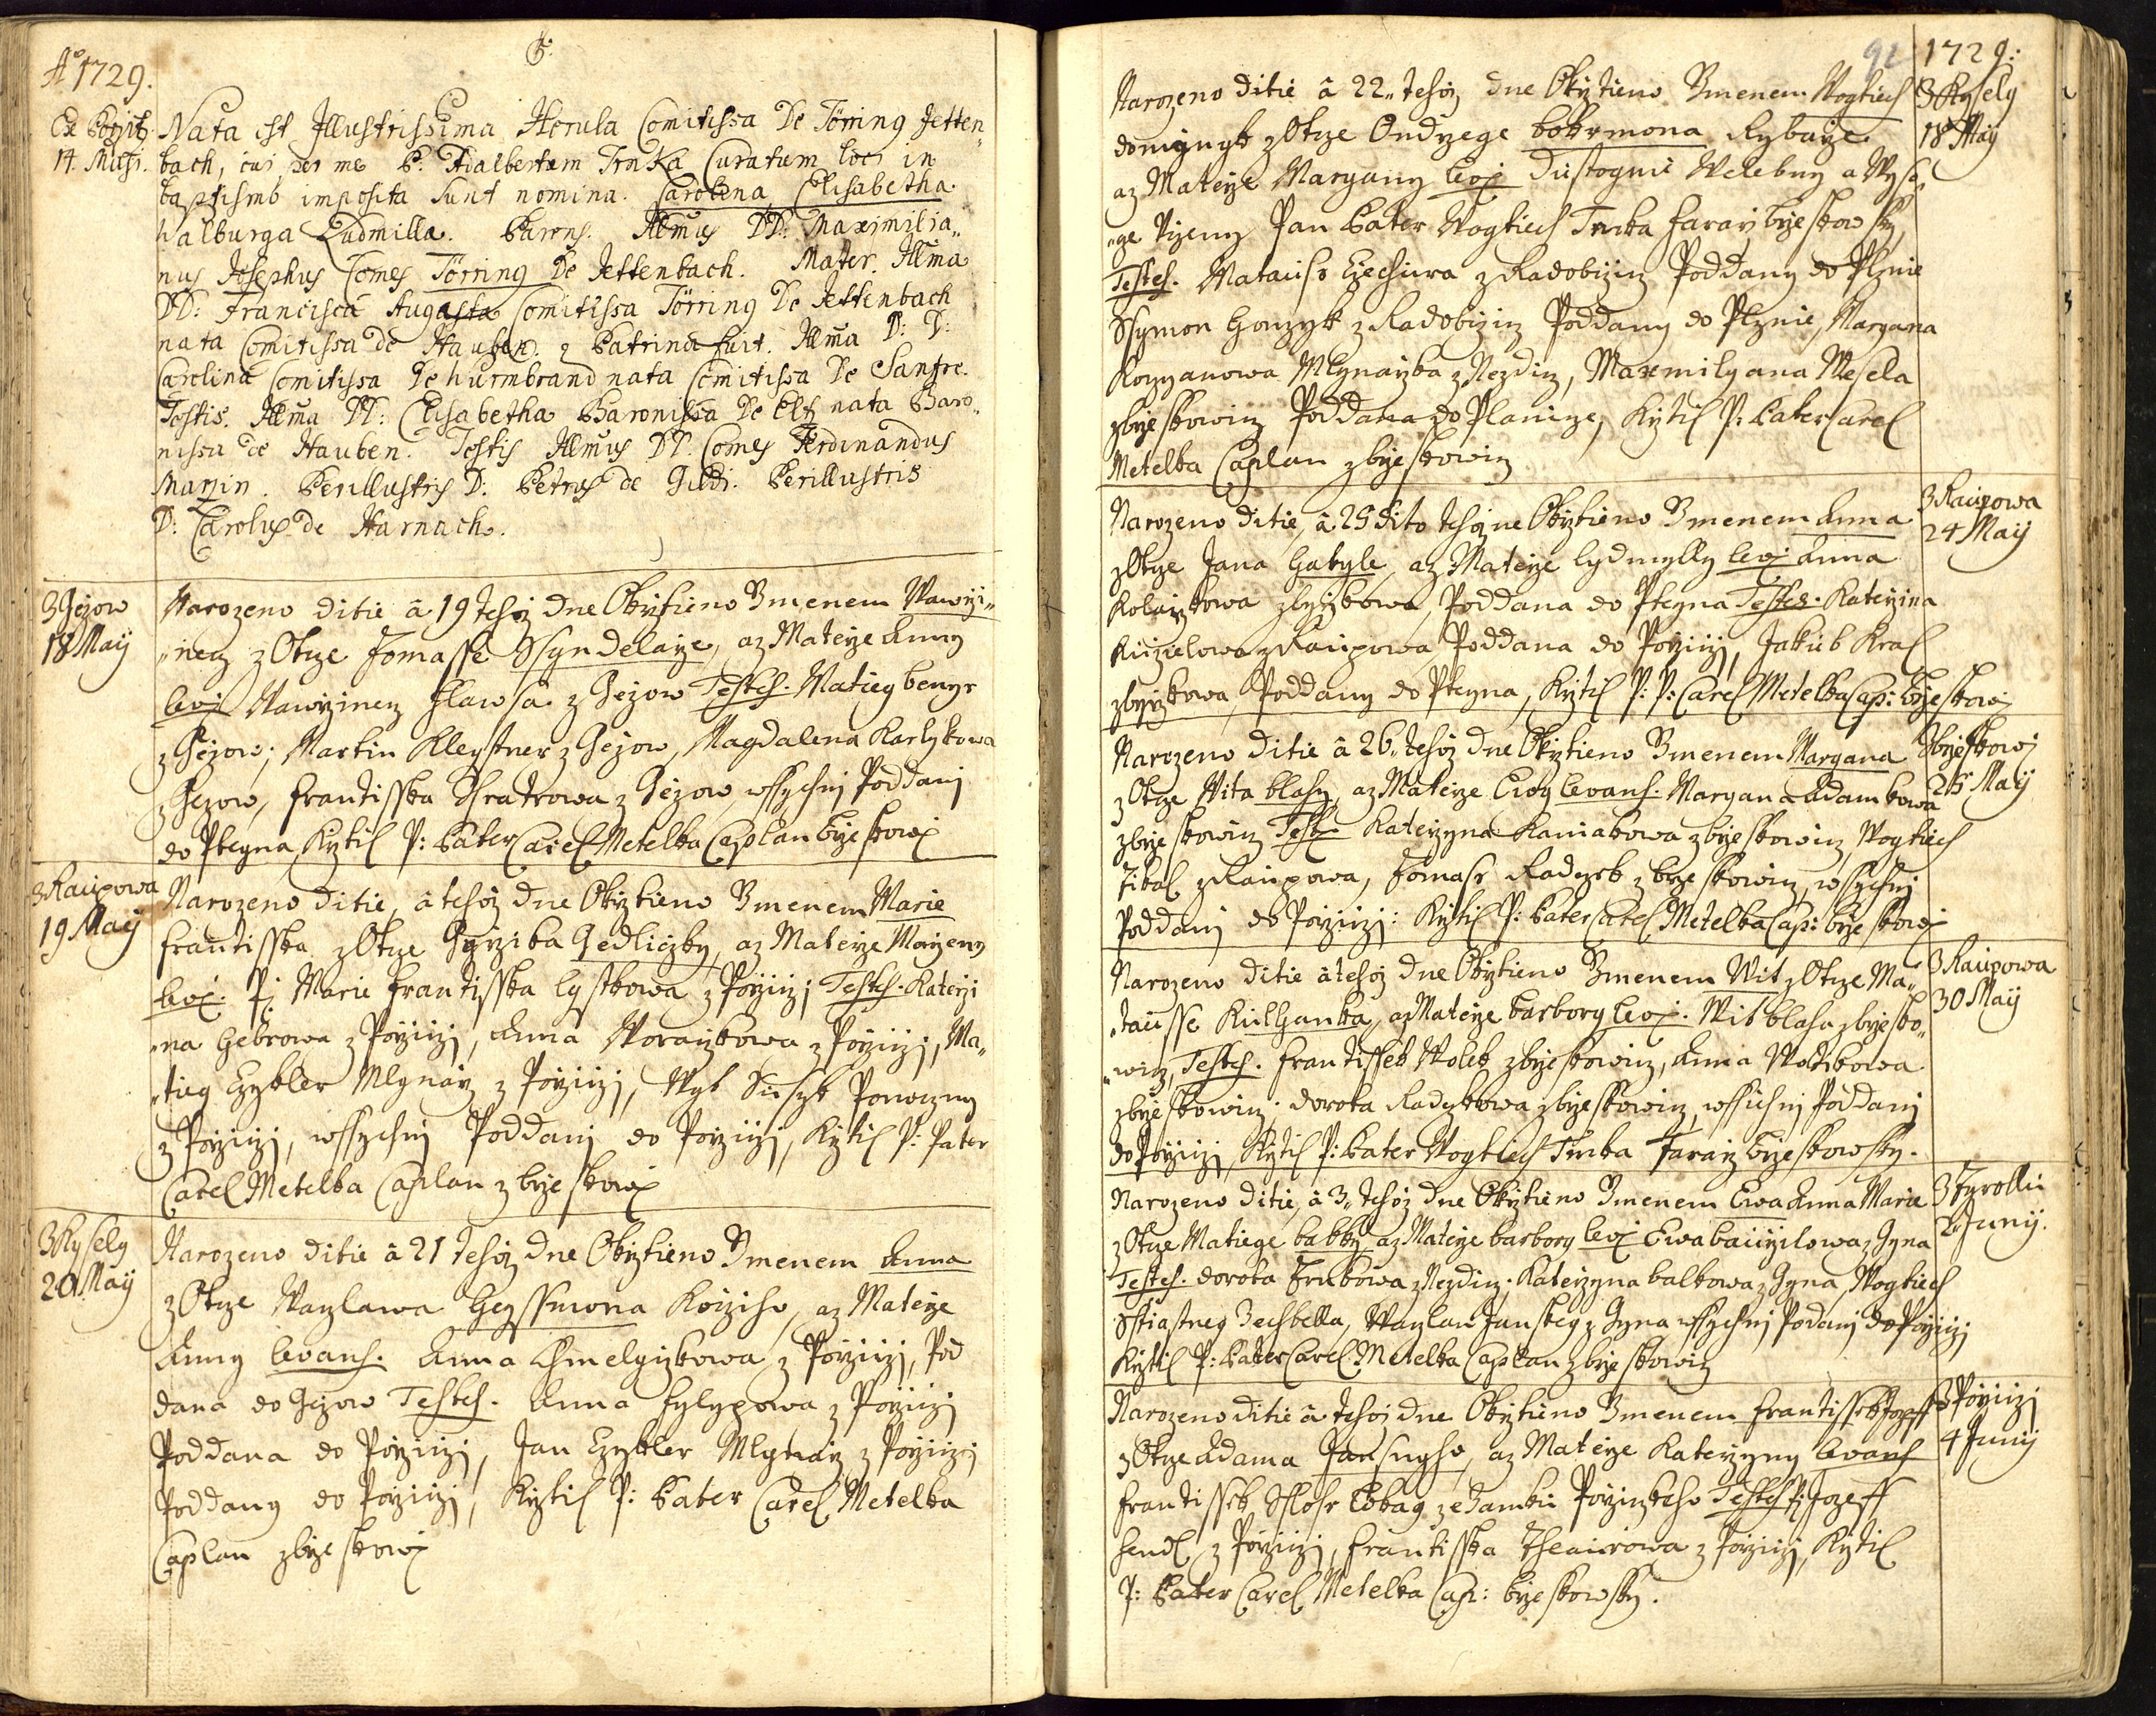 Aō 1729.
Ex Porzitz
14. Maji.
Nata est Illustrissima Herula Comitissa De Törring Jetten„
bach, cui per me P. Adalbertum Trnka Curatum loci in
baptismo imposita sunt nomina. Carolina Elisabetha
Walburga Ludmilla. Parens. Illmus DD. Maximilia„
nus Josephus Comes Törring De Jettenbach. Mater. Illma
DD: Francisca Augusta Comitissa Törring De Jettenbach
nata Comitissa de Hauben. Patrina fuit. Illma D: D:
Carolina Comitissa De Wurmbrand nata Comitissa De Sanfre.
Testis. Illma DD: Elisabetha Baronissa De nata Baro„
nissa de Hauben. Testis Illmus DD. Comes Ferdinandus
Marzin. Perillustris D: Petrus de Gildi. Perillustris
D: Carolus de Harnach.
Z Gezow
18 Maij
Narozeno ditie â 19 tehoz dne Okrztieno Gmenem Wawrzi„
„necz z Otcze Tomasse Ssyndelarze, a z Materze Anny
lev: Wawrzinecz Hlawsa z Gezow Testes. Matieg
z Gezow, Martin Kleystner z Gezow, Magdalena Karlykowa
z Gezow, Frantisska z Gezow wssychni Poddani
do Ptegna Krztil P: Pater Carel Metelka Caplan Brzeskowi
Z Raupowa
19 Maij
Narozeno ditie, â tehoz dne Okrztieno Gmenem Marie
Frantisska z Otcze Gyrzika Gedliczky, a z Materze Marzeny
lev: P: Marie Frantisska Lystkowa z Porziczi Testes. Katerzi
„na Gebrowa z Porziczi, Anna Worarzkowa z Porziczi, Ma„
„tieg Czykler Mlynarz z Porziczi, Wyt Ponoczny
z Porziczi, wssychni Poddani do Porziczi, Krztil P: Pater
Carel Metelka Caplan z Brzeskowi
Z Kysely
20 Maij
Narozeno ditie â 21 tehoz dne Okrztieno Gmenem Anna
z Otcze Waczlawa Geyssmona, a z Materze
Anny levans. Anna Chmelgirzkowa z Porziczi, Pod
dana do Gezow Testes. Anna Fylypowa z Porziczi
Poddana do Porziczi, Jan Czykler Mlynarz z Porziczi
Poddany do Porziczi, Krztil P: Pater Carel Metelka
Caplan z Brzeskowi
92
1729:
Narozeno ditie â 22„ tehoz dne Okrztieno Gmenem Wogtiech
dominyk z Otcze Ondrzege Bokrmona Rybarze
a z Materze Maryany lev: Dustogne Welebny a Wyso„
„ce Pan Pater Wogtiech Trnka Fararz Brzeskowsky,
Testes. Matauss Czechura z Radobyczicz Poddany do Plznie
Ssymon Honzyk z Radobyczicz Poddany do Plznie, Maryana
Mlynarzka z Nezdicz, Maxmilyana Wesela
z Brzeskowicz Poddana do Planicze, Krztil P: Pater Carel
Metelka Caplan z Brzeskowicz
Z Kysely
18 Maij
Narozeno ditie, â 25 dito tehoz dne Okrztieno Gmenem Anna
z Otcze Jana Habyle, a z Materze Lydmylly lev: Anna
Kolarzkowa z Borzykowa, Poddana do Ptegna Testes. Katerzina
z Raupowa Poddana do Porziczi, Jakub Kral
z Borzykowa, Poddany do Ptegna, Krztil P: P: Carel Metelka Cap: Brzeskowi
Z Raupowa
24 Maij
Narozeno ditie â 26„ tehoz dne Okrztieno Gmenem Maryana
z Otcze Wita Blahy, a z Materze Ewy levans. Maryana Adamkowa
z Brzeskowicz Test: Katerzyna Kaniakowa z Brzeskowicz Wogtiech
Tikal z Raupowa, Tomass Radyrk z Brzeskowicz, wssychni
Poddani do Porziczi: Krztil P: Pater Carel Metelka Cap: Brzeskowi
Z Brzeskowi
26 Maij
Narozeno ditie â tehoz dne Okrztieno Gmenem Wit z Otcze Ma„
„tausse Kulhanka, a z Materze Barbory lev: Wit Blaha z Brzesko„
„wicz, Testes. Frantissek Wolek z Brzeskowicz, Anna
z Brzeskowicz. Dorota Radyrkowa z Brzeskowicz, wssichni Poddani
do Porziczi Krztil P: Pater Wogtiech Trnka Fararz Brzeskowsky.
Z Raupowa
30 Maij
Narozeno ditie, â 3„ tehoz dne Okrztieno Gmenem Ewa Anna Marie
z Otcze Matiege Babky a z Materze Barbory lev: Ewa z Gyna
Testes. Dorota Trnkowa z Nezdicz. Katerzyna Balkowa z Gyna, Wogtiech
Waczlaw z Gyna wssychni Podani do Porziczi
Krztil P: Pater Carel Metelka Caplan z Brzeskowicz
2 Junij.
Narozeno ditie â tehoz dne Okrztieno Gmenem Frantissek Jozeff
z Otcze Adama, a z Materze Katerzyny levans
Frantissek ze Zamku Porziczkeho Testes P: Jozeff
Hendl z Porziczi, Frantisska z Porziczi, Krztil
P: Pater Carel Metelka Cap: Brzeskowsky.
Z Porziczi
4 Junij